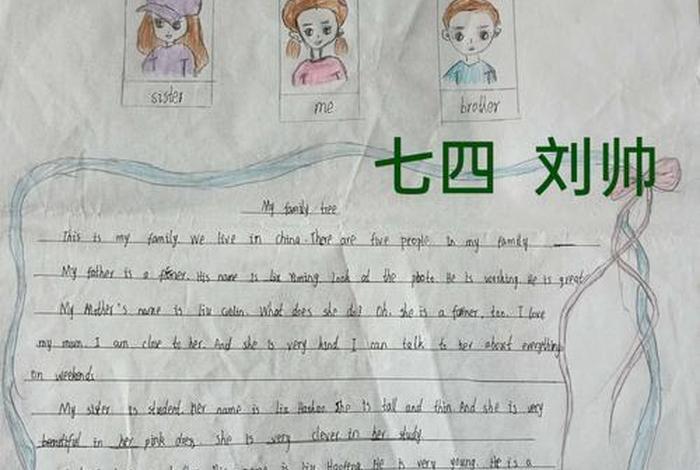 sister
me
brother
七四 刘帅
My family tree
This is my family We live in china. There are five people in my family
My father is a farmer. His name is Liu Yiming Look at the photo. He is working He is great
My Mother's name is Liu What does she do? Oh, she is a farmer, too. I love
my mom. I am close to her. And she is very kind I can talk to her about everything
on weekends
My sister is student. Her name is Liu She is tall and thin And she is very
beautiful in her pink dres. She is very clever in her study
name is Liu Haofeng He is very young. He is a